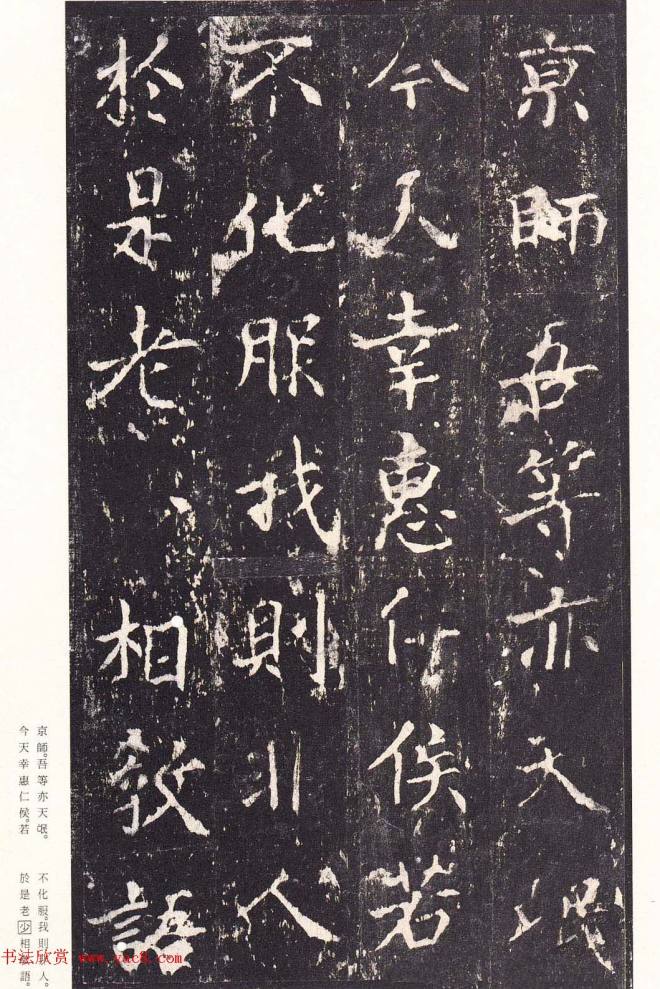 京師吾等亦天氓
今天幸惠仁侯若
不化服我則非人
於是老相教語
京師。吾等亦天氓。
今天幸惠仁侯。若
不化服。我則非人。
於是老少相教語。
书法欣赏 www.yac8.com